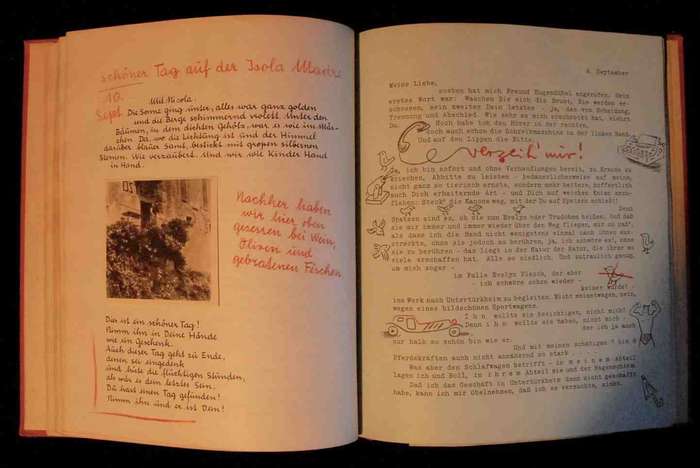 schöner Tag auf der Isola Madre
10.
Sept.
Mit Nicola.
Die Sonne ging unter, alles war ganz golden
und die Berge schimmernd violett. Unter den
Bäumen, in dem dichten Gehölz, war es wie im Mär-
chen. Da, wo die Lichtung ist sind der Himmel
darüber blauer Samt, bestickt mit großen silbernen
Sternen. Wie verzaubert. Sind wir wie Kinder Hand
in Hand.
Nachher haben
wir hier oben
gesessen bei Wein,
Oliven und
gebratenen Fischen
Dies ist ein schöner Tag!
Nimm ihn in Deine Hände
wie ein Geschenk.
Auch dieser Tag geht zu Ende,
denen sei eingedenk
und hüte die flüchtigen Stunden,
als wär es dein letztes Sein.
Du hast einen Tag gefunden!
Nimm ihn und er ist Dein!
4. September
Meine Liebe,
soeben hat mich Freund Hugendübel angerufen. Sein
erstes Wort war: Waschen Sie sich die Brust, Sie werden er-
schossen, sein zweites Dein letztes - ja, das von Scheidung,
Trennung und Abschied. Wie sehr so ein erschreckt hat, siehst
Du. Noch habe ich den Hörer in der rechten,
doch auch schon die Schreibmaschine in der linken Hand.
Und auf den Lippen die Bitte.
verzeih' mir!
Ja, ich bin sofort und ohne Verhandlungen bereit, zu Kreuze zu
kriechen, Abbitte zu leisten - bedauerlicherweise auf meine,
nicht ganz so tierisch ernste, sondern mehr heitere, hoffentlich
auch Dich erheiternde Art - und Dich auf beiden Knien anzu-
flehen: Steck' die Kanone weg, mit der Du auf Spatzen schießt!
Denn
Spatzen sind es, ob die nun Evelyn oder Trudchen heißen. Und daß
sie mir immer und immer wieder über den Weg fliegen, mir so nah',
als dass ich die Hand nicht wenigstens einmal nach ihnen aus-
streckte, ohne sie jedoch zu berühren, ja, ich schwöre es!, ohne
sie zu berühren - das liegt in der Natur der Natur, die ihrer so
viele erschaffen hat. Alle so niedlich. Und zutraulich genug,
um mich sogar -
im Falle Evelyn Flesch, der aber
- ich schwöre schon wieder -
keiner wurde! -
ins Werk nach Untertürkheim zu begleiten. Nicht meinetwegen, nein,
wegen eines bildschönen Sportwagens.
Ihn wollte sie besichtigen, nicht mich!
Denn ihn wollte sie haben, nicht mich -
der ich ja auch
nur halb so schön bin wie er.
Und mit meinen schäbigen ½ bis 1
Pferdekräften auch nicht annähernd so stark.
Was aber den Schlafwagen betrifft - in meinem Abteil
lagen ich und Böll, in ihrem Abteil sie und der Regenschirm.
Daß ich das Geschäft in Untertürkheim dann nicht geschafft
habe, kann ich mir Übelnehmen, daß ich es versuchte, nicht.